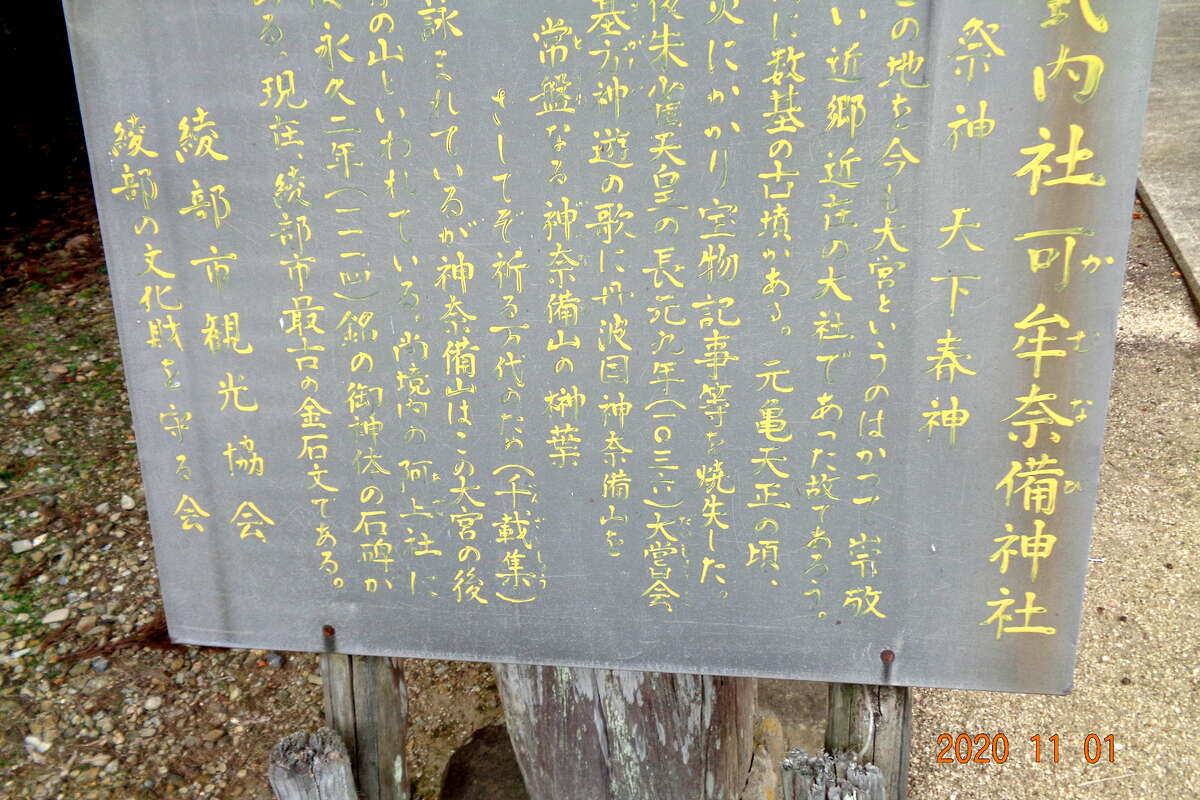 式内社可牟奈備神社
かむなひ
祭神 天下春神
この地を今も大宮というのはかつ 崇敬
い近郷近在の大社であった故であろう。
に数基の古墳がある。元亀天正の頃、
災にかかり宝物記事等を焼失した。
後朱雀天皇の長元九年(一〇三六)大嘗会
基方神遊の歌に丹波国神奈備山を
常盤なる神奈備山の榊葉
さしてぞ祈る万代のため(千載集)
詠まれているが神奈備山はこの大宮の後
の山といわれている。尚境内の阿上社に
永久二年(一一一四)銘の御神体の石碑が
ある、現在、綾部市最古の金石文である。
綾部市観光協会
綾部の文化財を守る会
2020 11 01